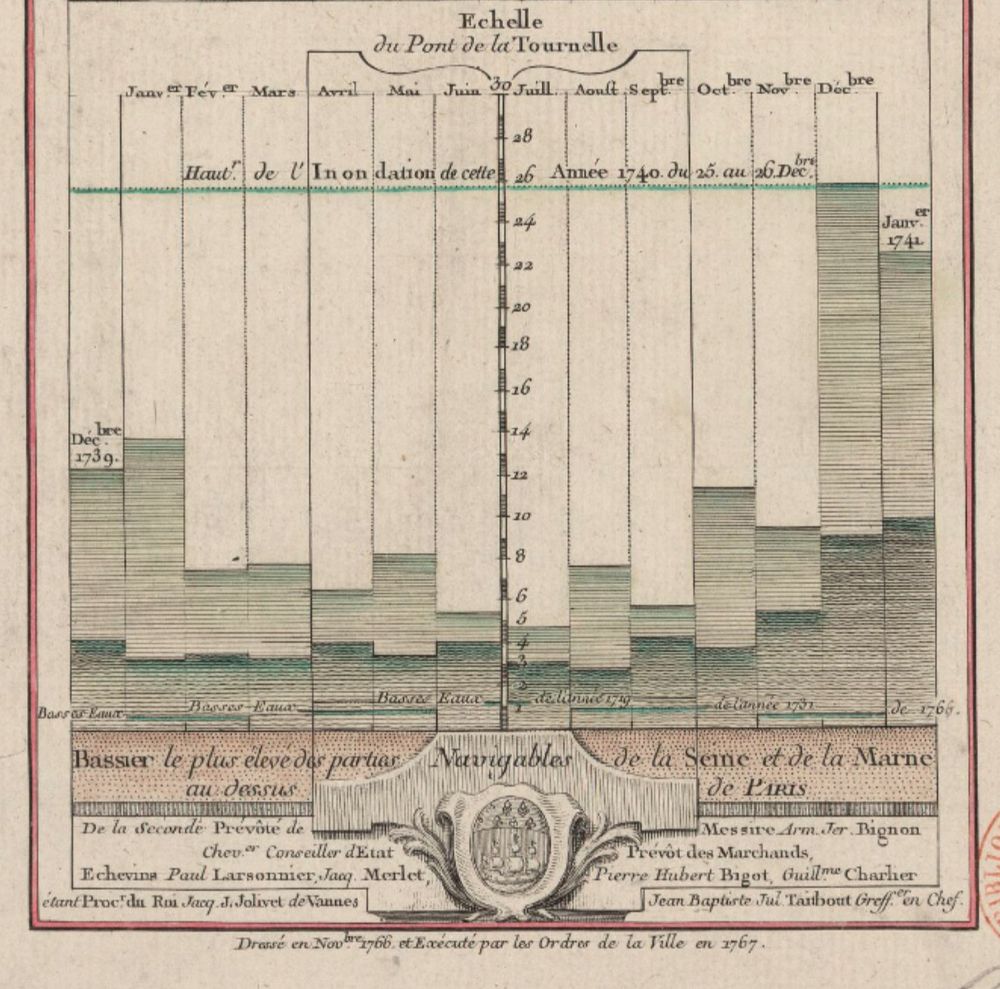 Echelle
du Pont de la Tournelle
Janv.er Fév.er Mars Avril Mai Juin 30 Juill. Aoust Sept.bre Oct.bre Nov.bre Déc.bre
28
Haut.r de l'Inondation de cette 26 Année 1740. du 25. au 26. Déc.bre
24
Janv.er
1741.
22
20
18
16
14
Déc.bre
1739.
12
10
8
6
5
4
3
2
Basses Eaux Basses Eaux Basses Eaux de l'année 1719 de l'année 1731 de 1766.
1
Bassier le plus élevé des parties Navigables de la Seine et de la Marne
au dessus de PARIS
De la Seconde Prévôté de Messire Arm. Jer. Bignon
Chev.er Conseiller d'Etat Prévôt des Marchands,
Echevins Paul Larsonnier, Jacq. Merlet, Pierre Hubert Bigot, Guill.me Charlier
étant Proc.r du Roi Jacq. J. Jolivet de Vannes Jean Baptiste Jul. Taitbout Greff.er en Chef.
Dressé en Nov.bre 1766. et Exécuté par les Ordres de la Ville en 1767.